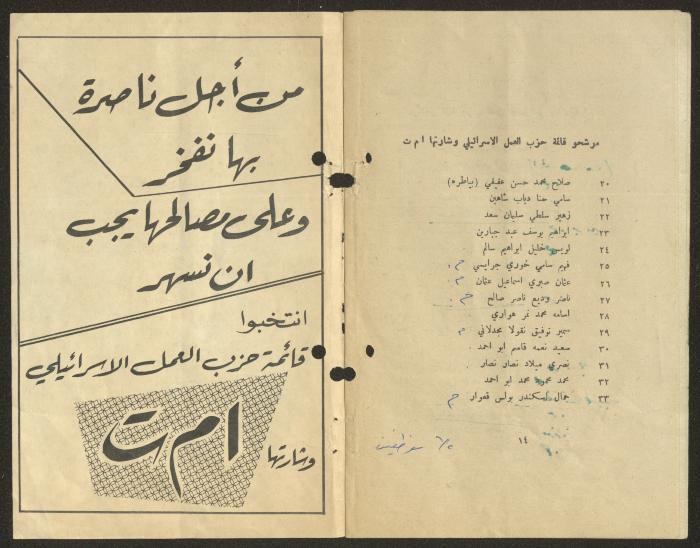 مرشحو قائمة حزب العمل الاسرائيلي وشارتها ا م ت
٢٠ صلاح محمد حسن عفيفي (بياطره)
٢١ سامي حنا دياب شاهين
٢٢ زهير سلطي سليمان سعد
٢٣ ابراهيم يوسف عبد جبارين
٢٤ لويس خليل ابراهيم سالم
٢٥ فهيم سامي خوري جرايسي م.
٢٦ عثمان صبري اسماعيل عثمان م.
٢٧ ناصر وديع ناصر صالح م.
٢٨ اسامه محمد نمر هواري
٢٩ سمير توفيق نقولا مجدلاني م
٣٠ سعيد نعمه قاسم ابو احمد .
٣١ بصري ميلاد نصار نصار .
٣٢ محمد محمود محمد ابو احمد
٣٣ جمال اسكندر بولس قعوار م
١٤
من أجل ناصرة
بها نفخر
وعلى مصالحها يجب
ان نسهر
انتخبوا
قائمة حزب العمل الاسرائيلي
وشارتها
ا م ت